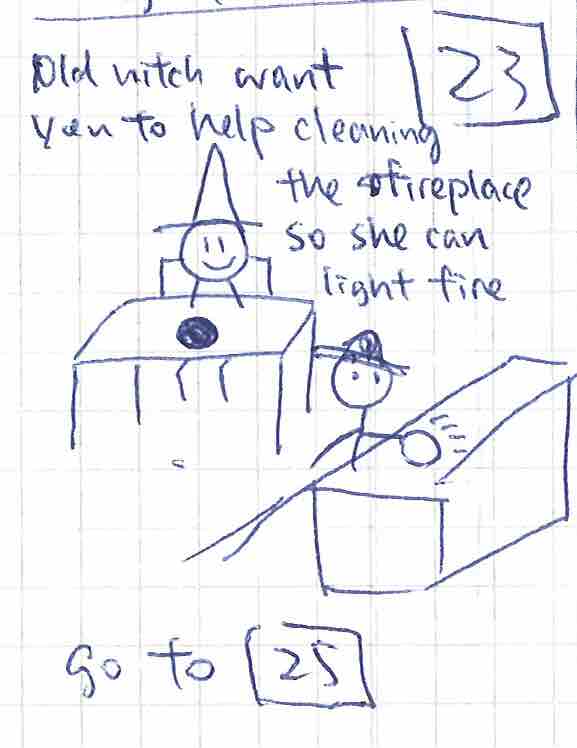 Old witch want
23
you to help cleaning
the fireplace
so she can
light fire
go to 25